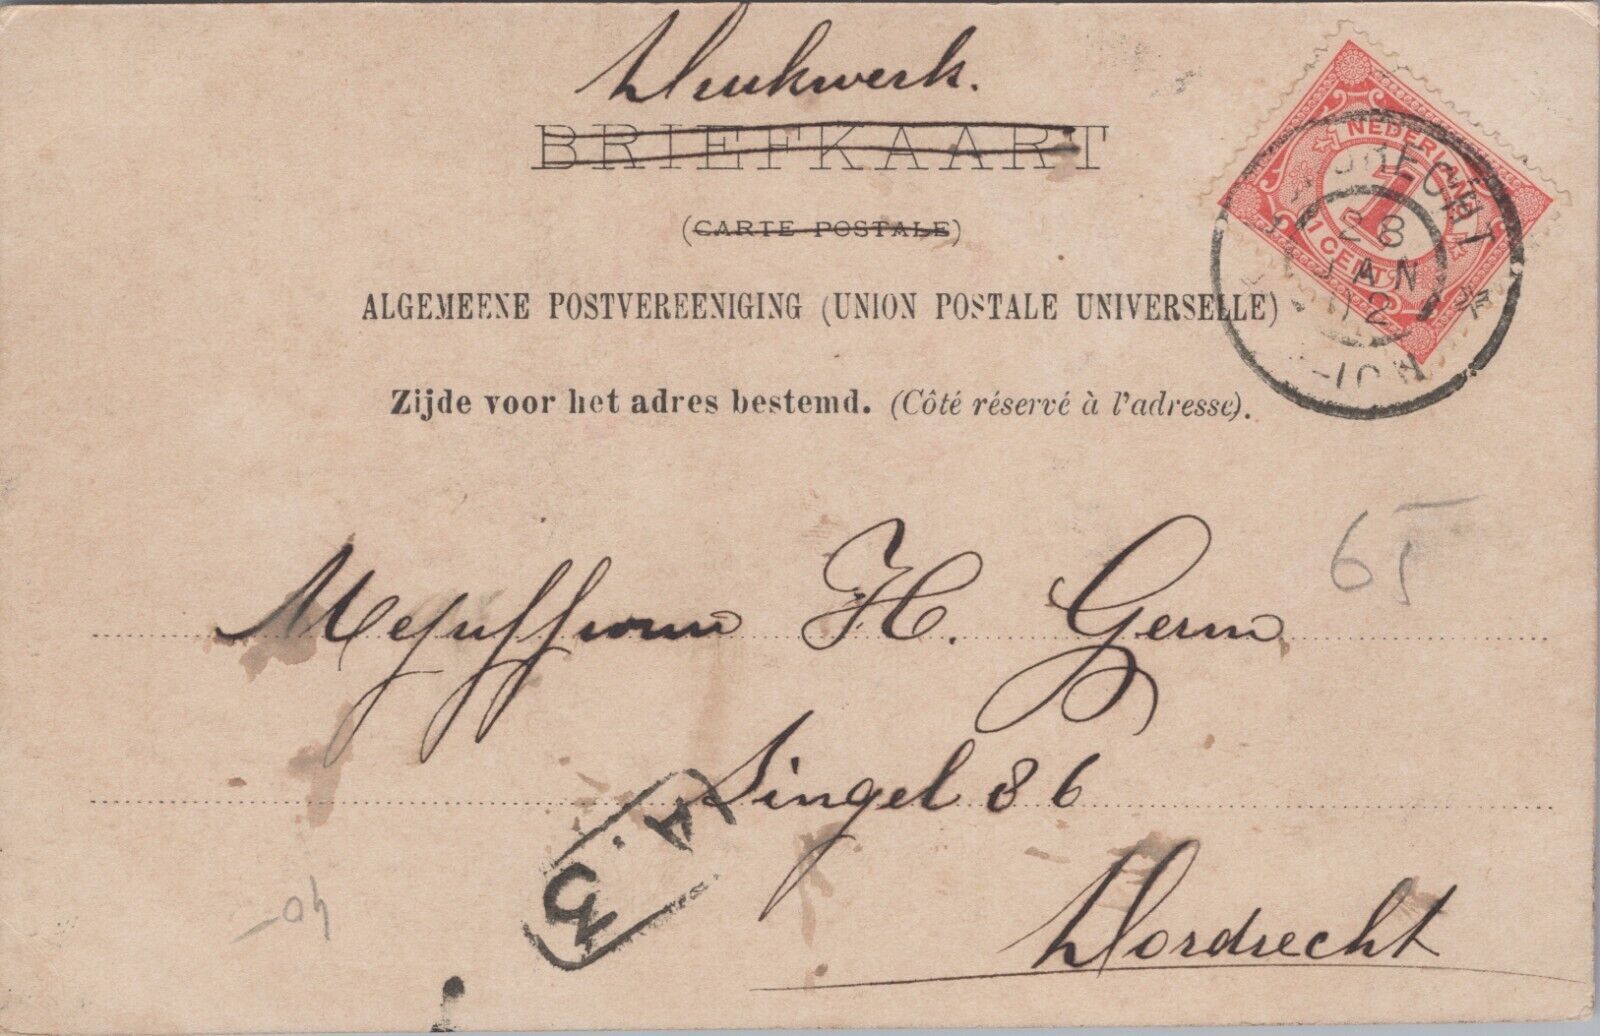 Drukwerk.
BRIEFKAART
(CARTE POSTALE)
ALGEMEENE POSTVEREENIGING (UNION POSTALE UNIVERSELLE)
Zijde voor het adres bestemd. (Côté réservé à l'adresse).
NEDERLAND
1
1 CENT
DORDRECHT
28
JAN
12
65
Mejuffrouw H. Germ
Singel 86
Dordrecht
3.A